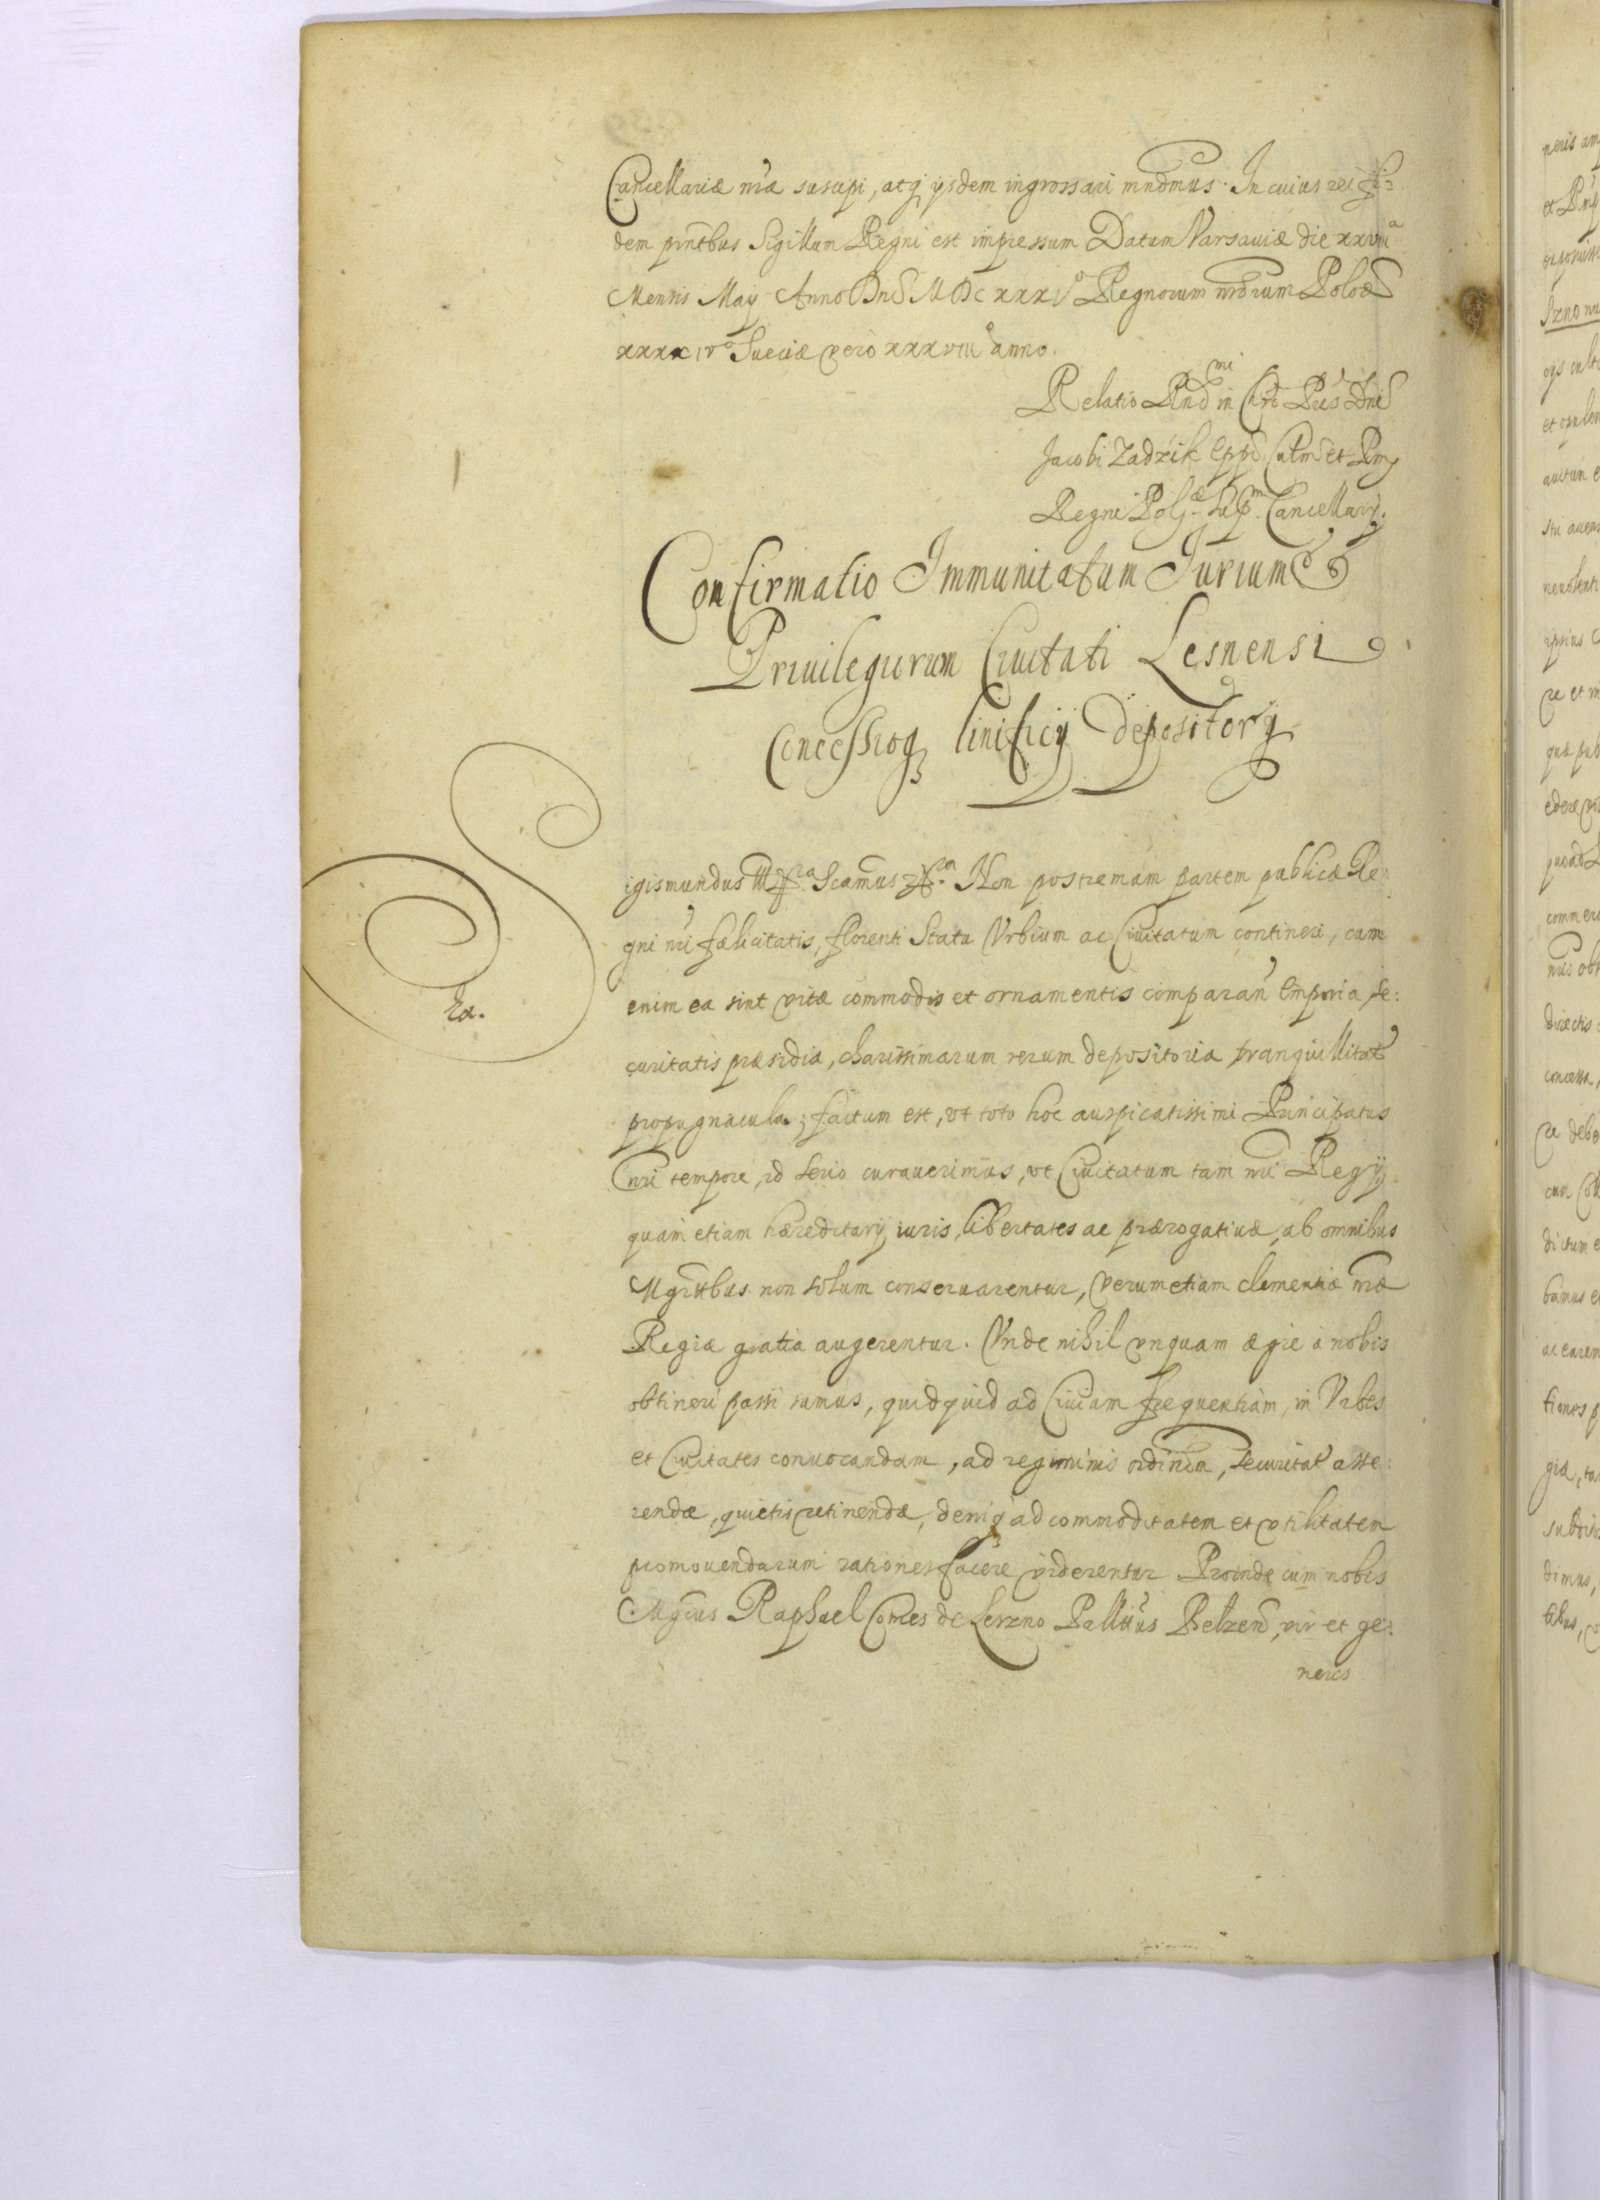 Cancellariæ nr̃æ suscipi, atq ijsdem ingrossari mndmus. In cuius rei fi=
dem pntbus Sigillum Regni est impressum Datum Varsauiæ die xxvııı a
Mensis Maij Anno Dni MDC xxxı o Regnorum nrorum Polo
xxxxıv o Sueciæ vero xxxvııı o anno.
Relatio Rndmi in Chro Pris Dni
Jacobi Zadzik Eppi Culm et Pom
Regni Pol. æ Sup m Cancellarij.
Confirmatio Immunitatum Jurium &
Priuilegiorum Ciuitati Lesnensi
Concessioq linificij depositorij
Sigismundus III &ra Scamus &ra. Non postremam partem publicæ Re
gni nri fælicitatis, florenti Statu Vrbium ac Ciuitatum contineri, cum
enim ea sint vitæ commodis et ornamentis comparan Emporia se:
curitatis præsidia, charissimarum rerum depositoria tranquillitat
propugnacula; factum est, vt toto hoc auspicatissimi Principatus
nri tempore, id serio curauerimus, vt Ciuitatum tam nri Regij
quam etiam hæreditarij iuris, libertates ac prærogatiuæ, ab omnibus
Mgrtbus non solum conseruarentur, verum etiam clementiæ nræ
Regiæ gratia augerentur. Vnde nihil vnquam ægre a nobis
obtineri passi sumus, quidquid ad Ciuium frequentiam, in Vrbes
et Ciuitates conuocandam, ad regiminis ordinem, securitat asse:
rendæ, quietis retinendæ, deniq ad commoditatem et vtilitatem
promouendarum rationes facere viderentur Proinde cum nobis
Mgcus Raphael Comes de Leszno Pallnus Belzen, vir et ge:
neris
Ex.